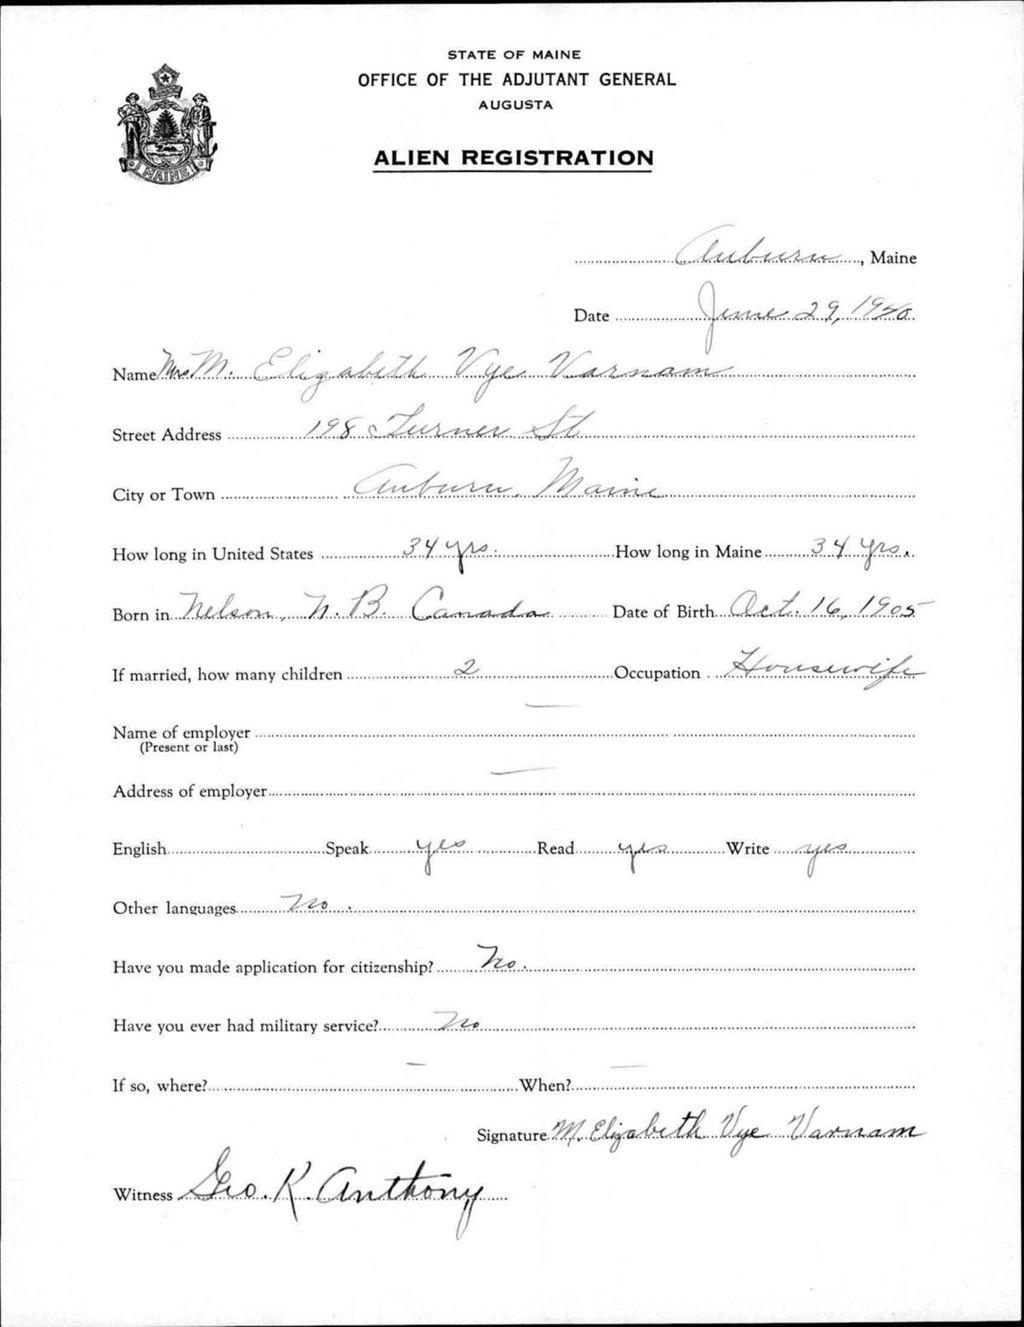 STATE OF MAINE
OFFICE OF THE ADJUTANT GENERAL
AUGUSTA
ALIEN REGISTRATION
MAINE
Auburn, Maine
Date June 29, 1940
Name Mrs M. Elizabeth Vye Varnam
Street Address 198 Turner St
City or Town Auburn, Maine
How long in United States 34 yrs. How long in Maine 34 yrs.
Born in Nelson, N. B. Canada Date of Birth Oct. 16, 1905
If married, how many children 2 Occupation Housewife
Name of employer —
(Present or last)
Address of employer —
English Speak yes Read yes Write yes
Other languages No.
Have you made application for citizenship? No.
Have you ever had military service? No
If so, where? — When? —
Signature M. Elizabeth Vye Varnam
Witness Geo. K. Anthony